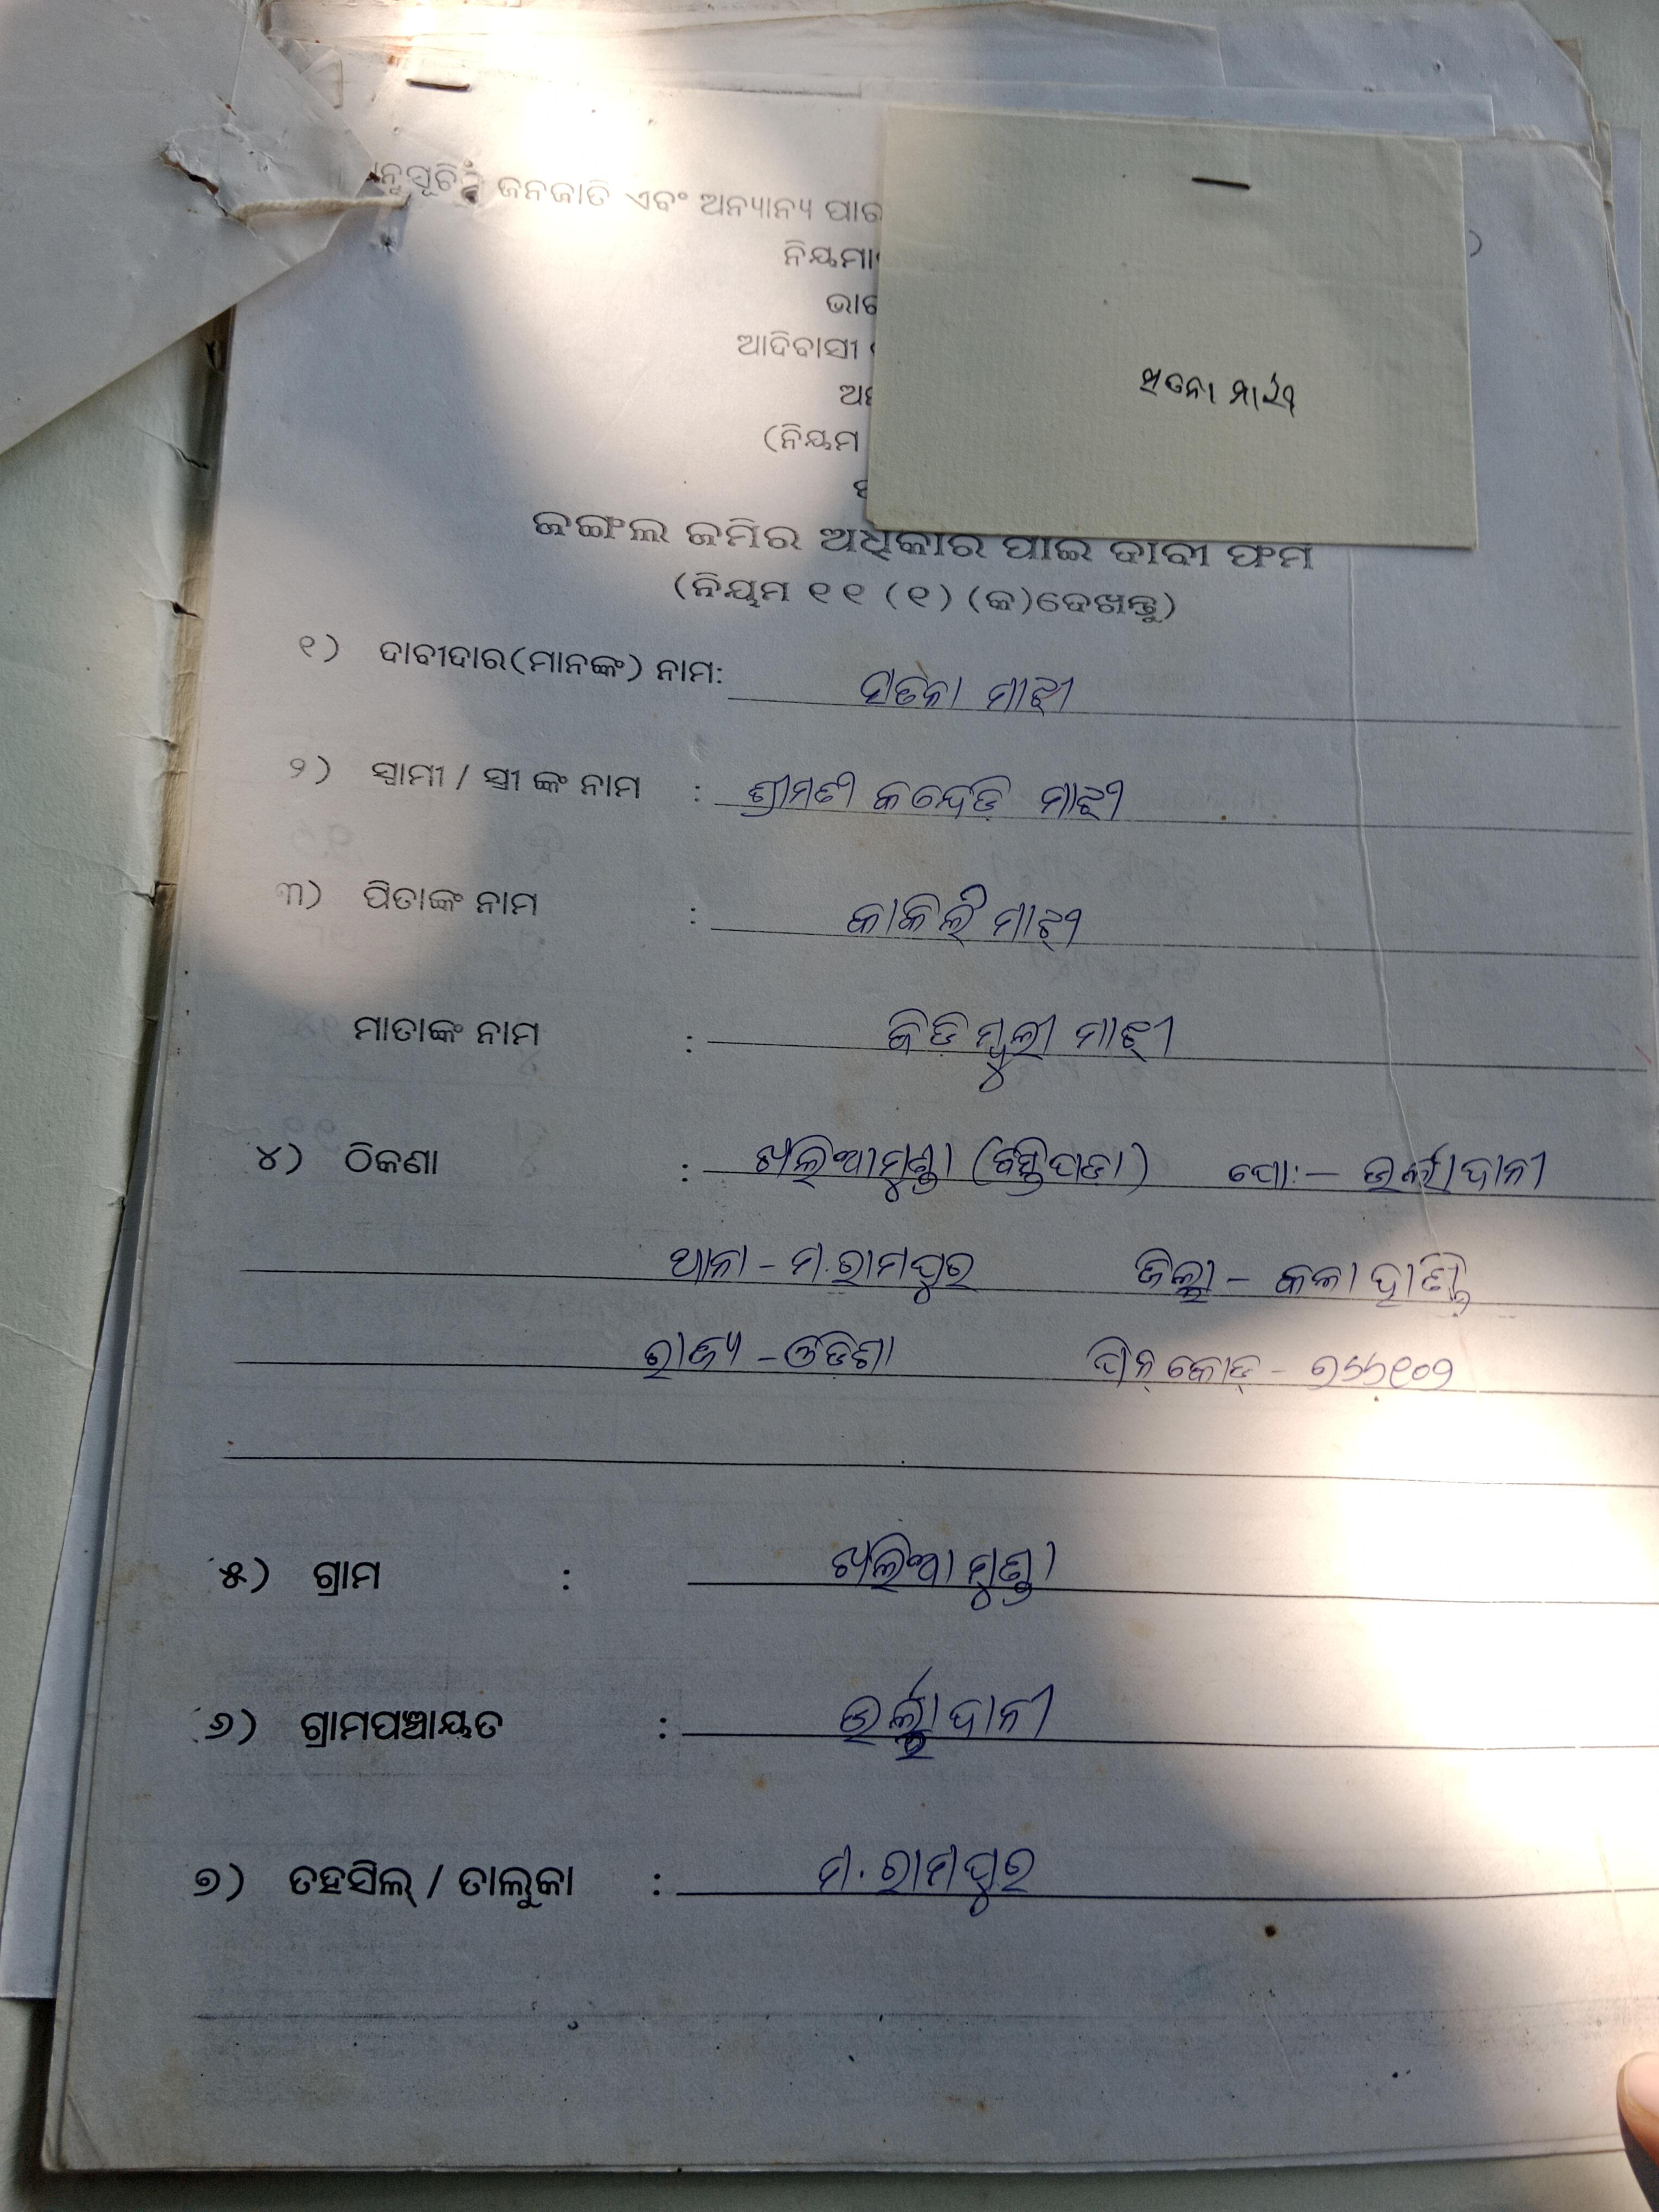 ଅନୁସୂଚିତ ଜନଜାତି ଏବଂ ଅନ୍ୟାନ୍ୟ
ଆଦିବାସୀ
(ନିୟମ
ଜଙ୍ଗଲ ଜମିର ଅଧିକାର ପାଇଁ ଦାବୀ ଫର୍ମ
(ନିୟମ ୧୧ (୧) (କ)ଦେଖନ୍ତୁ)
୧) ଦାବୀଦାର(ମାନଙ୍କ) ନାମ: ମାଝୀ
୨) ସ୍ୱାମୀ / ସ୍ତ୍ରୀ ଙ୍କ ନାମ : ଶ୍ରୀମତୀ ମାଝୀ
୩) ପିତାଙ୍କ ନାମ : କାକିଲି ମାଝୀ
ମାତାଙ୍କ ନାମ : ମାଝୀ
୪) ଠିକଣା : ଖଲିଆମୁଣ୍ଡା (ବସ୍ତିପଡା) ପୋ:- ଉର୍ଲାଦାନୀ
ଥାନା - ମ.ରାମପୁର ଜିଲ୍ଲା - କଳାହାଣ୍ଡି
ରାଜ୍ୟ - ଓଡିଶା ପିନ୍ କୋଡ୍ - ୭୬୬୧୦୨
୫) ଗ୍ରାମ : ଖଲିଆମୁଣ୍ଡା
୬) ଗ୍ରାମପଞ୍ଚାୟତ : ଉର୍ଲାଦାନୀ
୭) ତହସିଲ୍ / ତାଲୁକା : ମ.ରାମପୁର